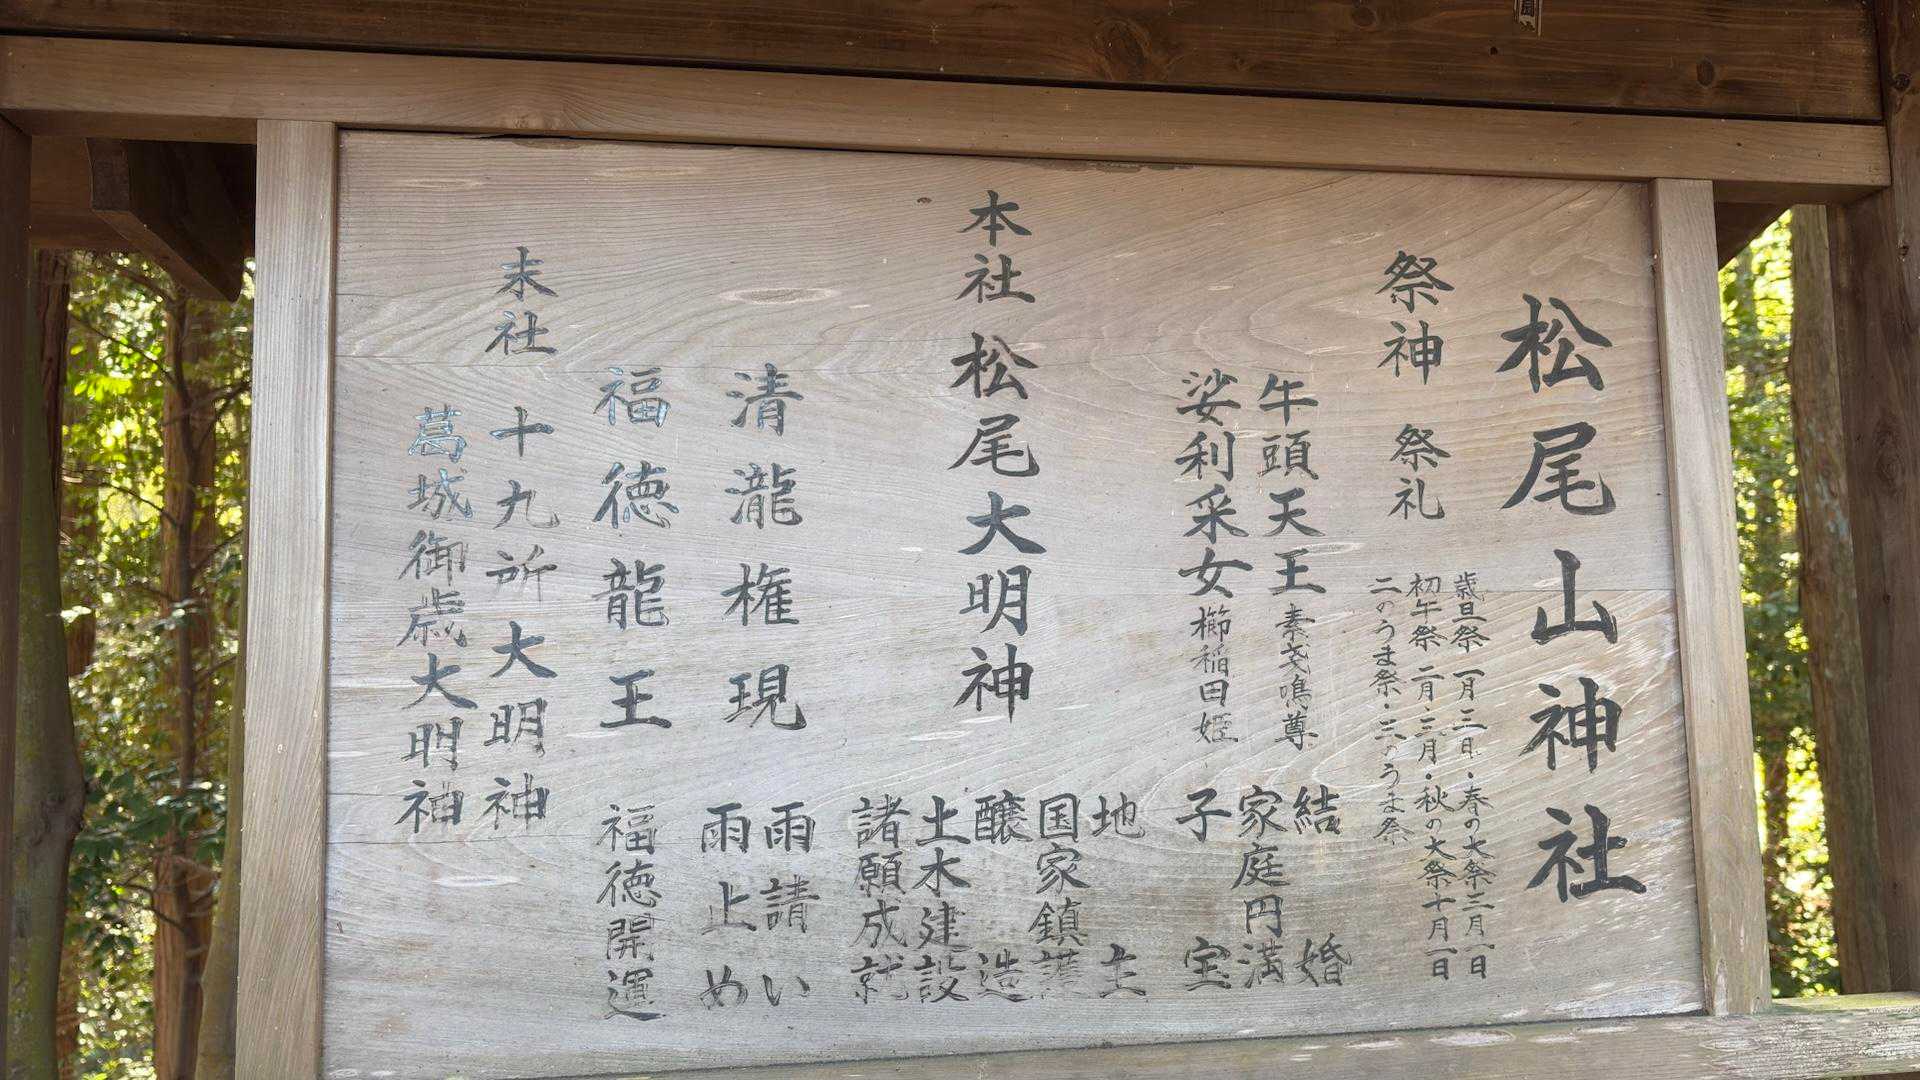 松尾山神社
祭神 祭礼
歳旦祭 一月三日・春の大祭三月一日
初午祭 二月・三月・秋の大祭十月一日
二のうま祭・三のうま祭
牛頭天王 素戔鳴尊 結婚
家庭円満
娑利采女 櫛稲田姫 子宝
本社 松尾大明神 地主
国家鎮護
醸造
土木建設
諸願成就
清瀧権現 雨請い
雨止め
福徳龍王 福徳開運
末社 十九所大明神
葛城御歳大明神